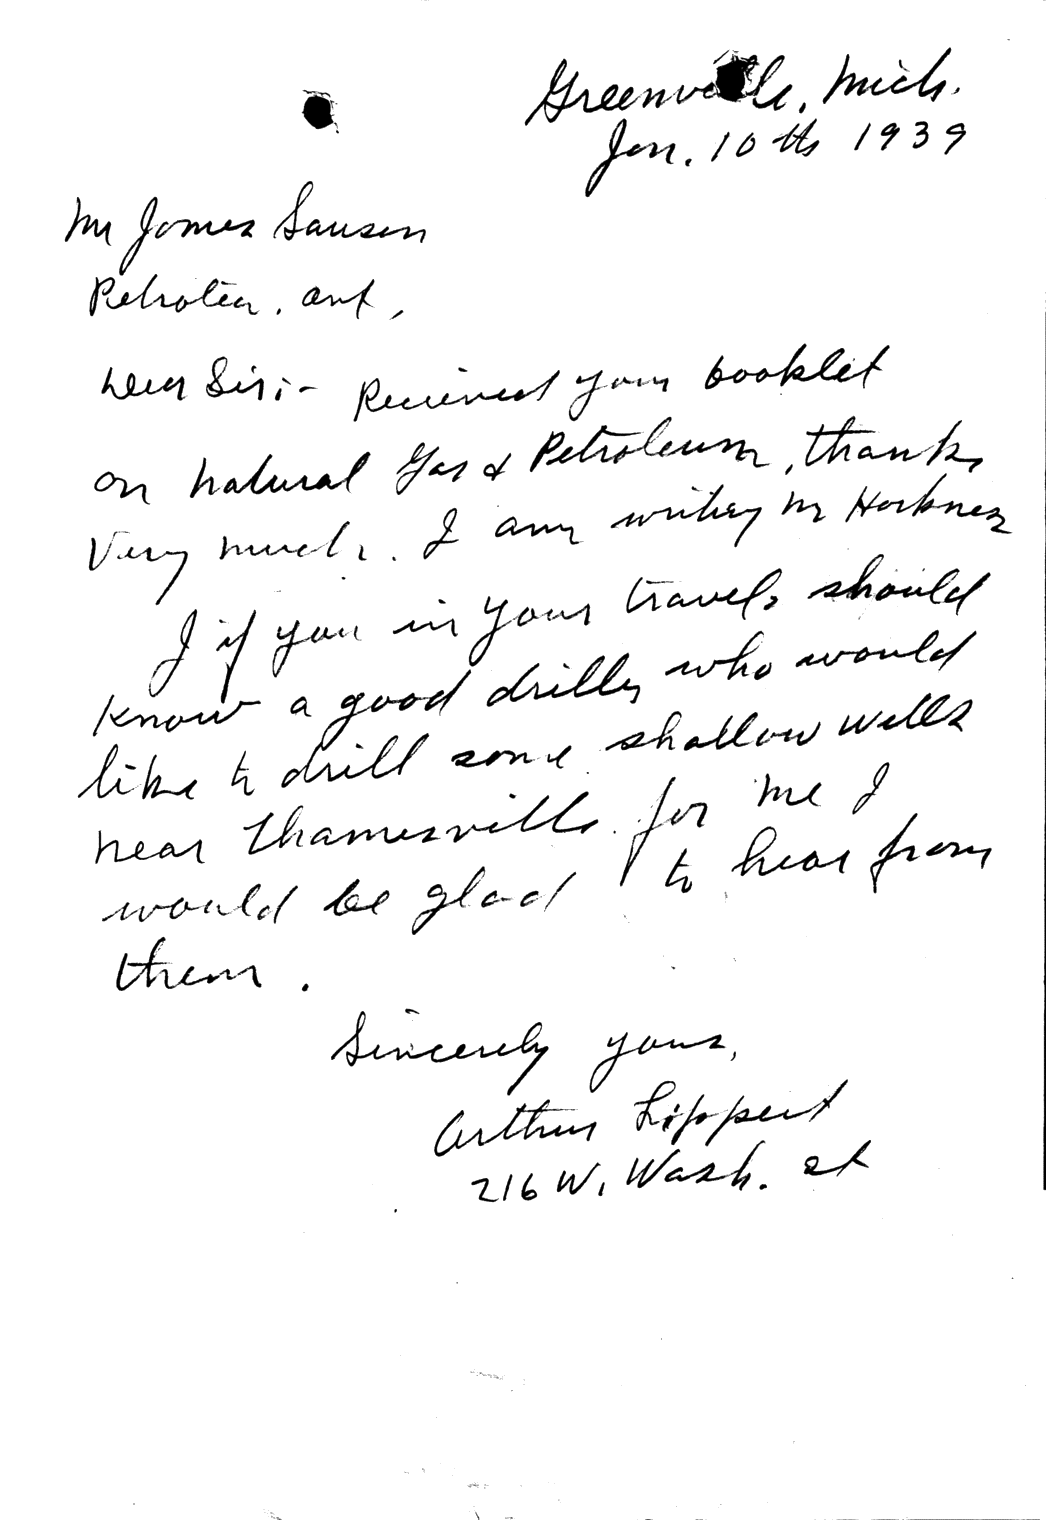 Greenville, Mich.
Jan. 10 th 1939
Mr James Sausen
Petrolia, Ont,
Dear Sir;- Received your booklet
on Natural Gas & Petroleum, thanks
Very much. I am writing Mr Harkness
I if you in your travels should
know a good driller who would
like to drill some shallow wells
near Thamesville for me I
would be glad to hear from
them.
Sincerely yours,
Arthur Lippert
216 W. Wash. st